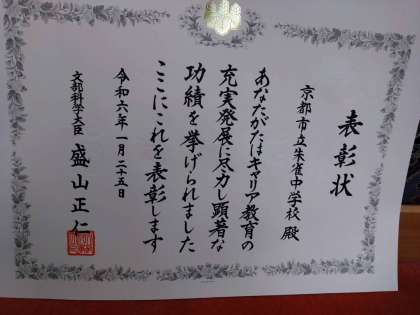 表彰状
京都市立朱雀中学校 殿
あなたがたはキャリア教育の
充実発展に尽力し顕著な
功績を挙げられました
ここにこれを表彰します
令和六年一月二十五日
文部科学大臣 盛山正仁